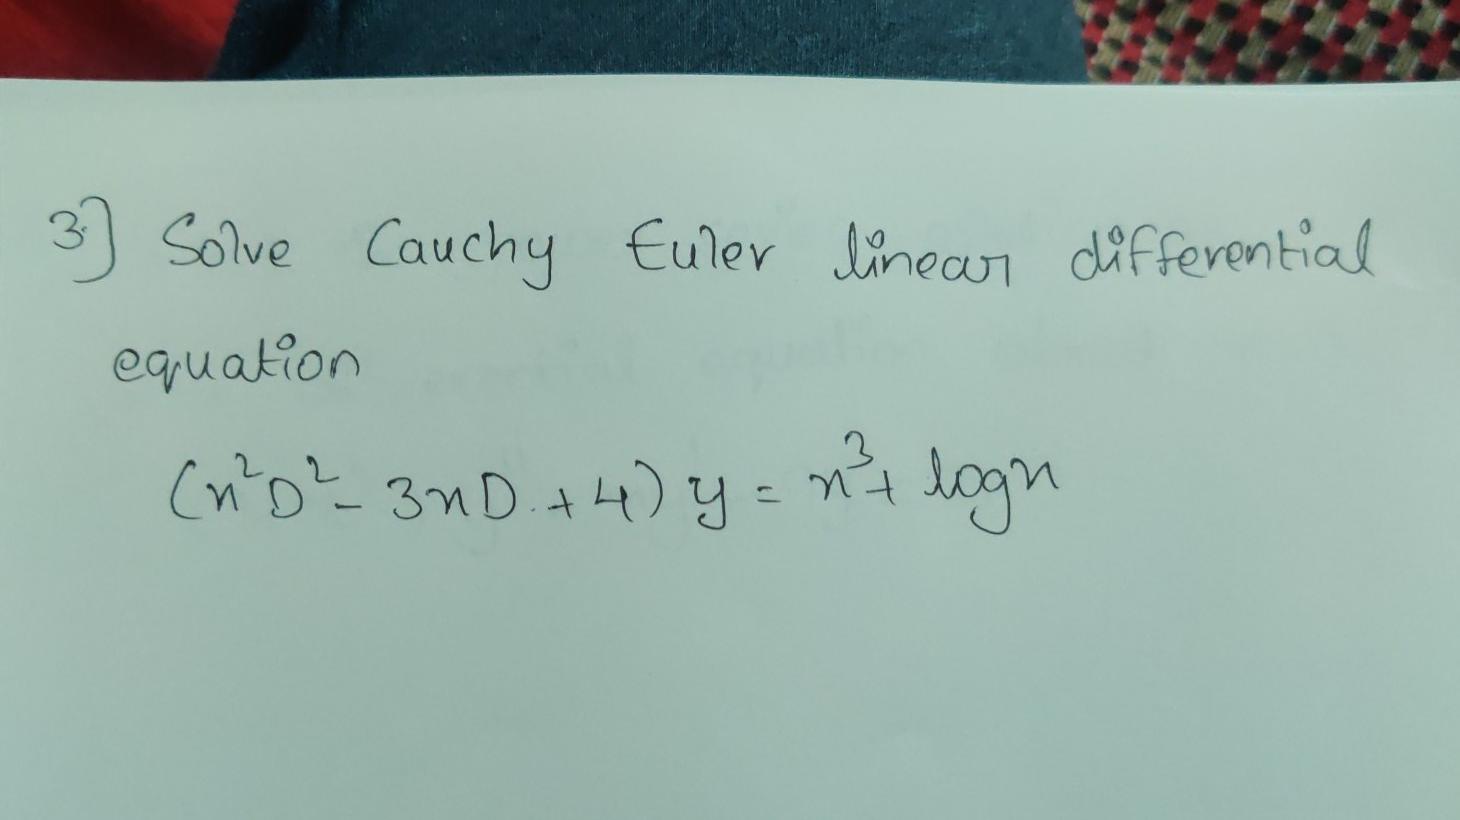 3.] Solve Cauchy Euler linear differential
equation
(x²D² - 3xD + 4) y = x³ + logx